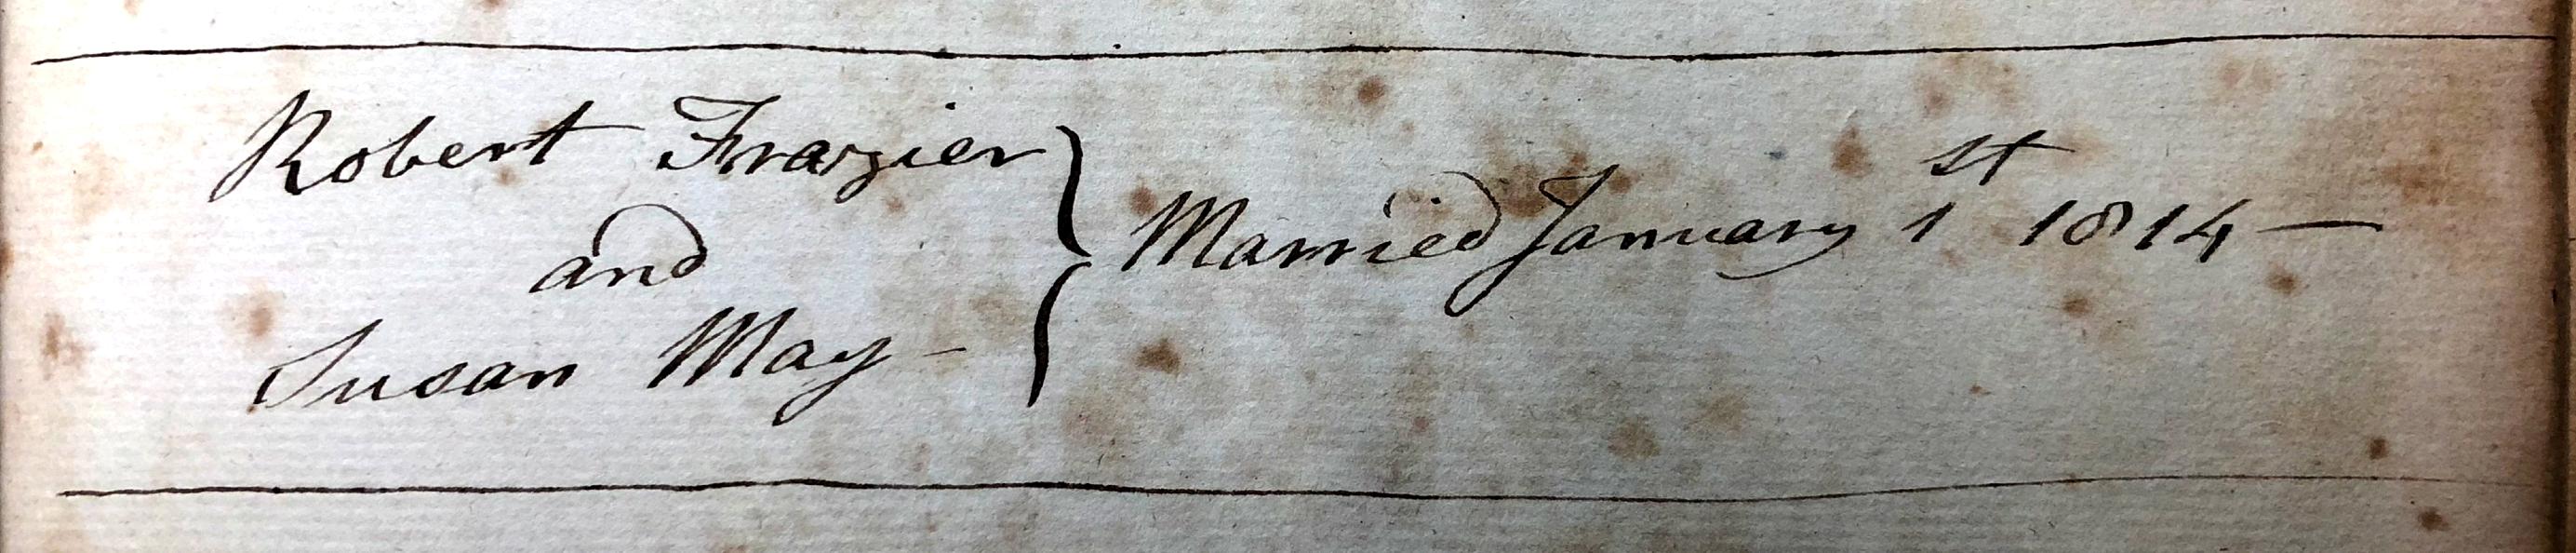 Robert Frazier
and
Susan May -
} Married January 1st 1814 —